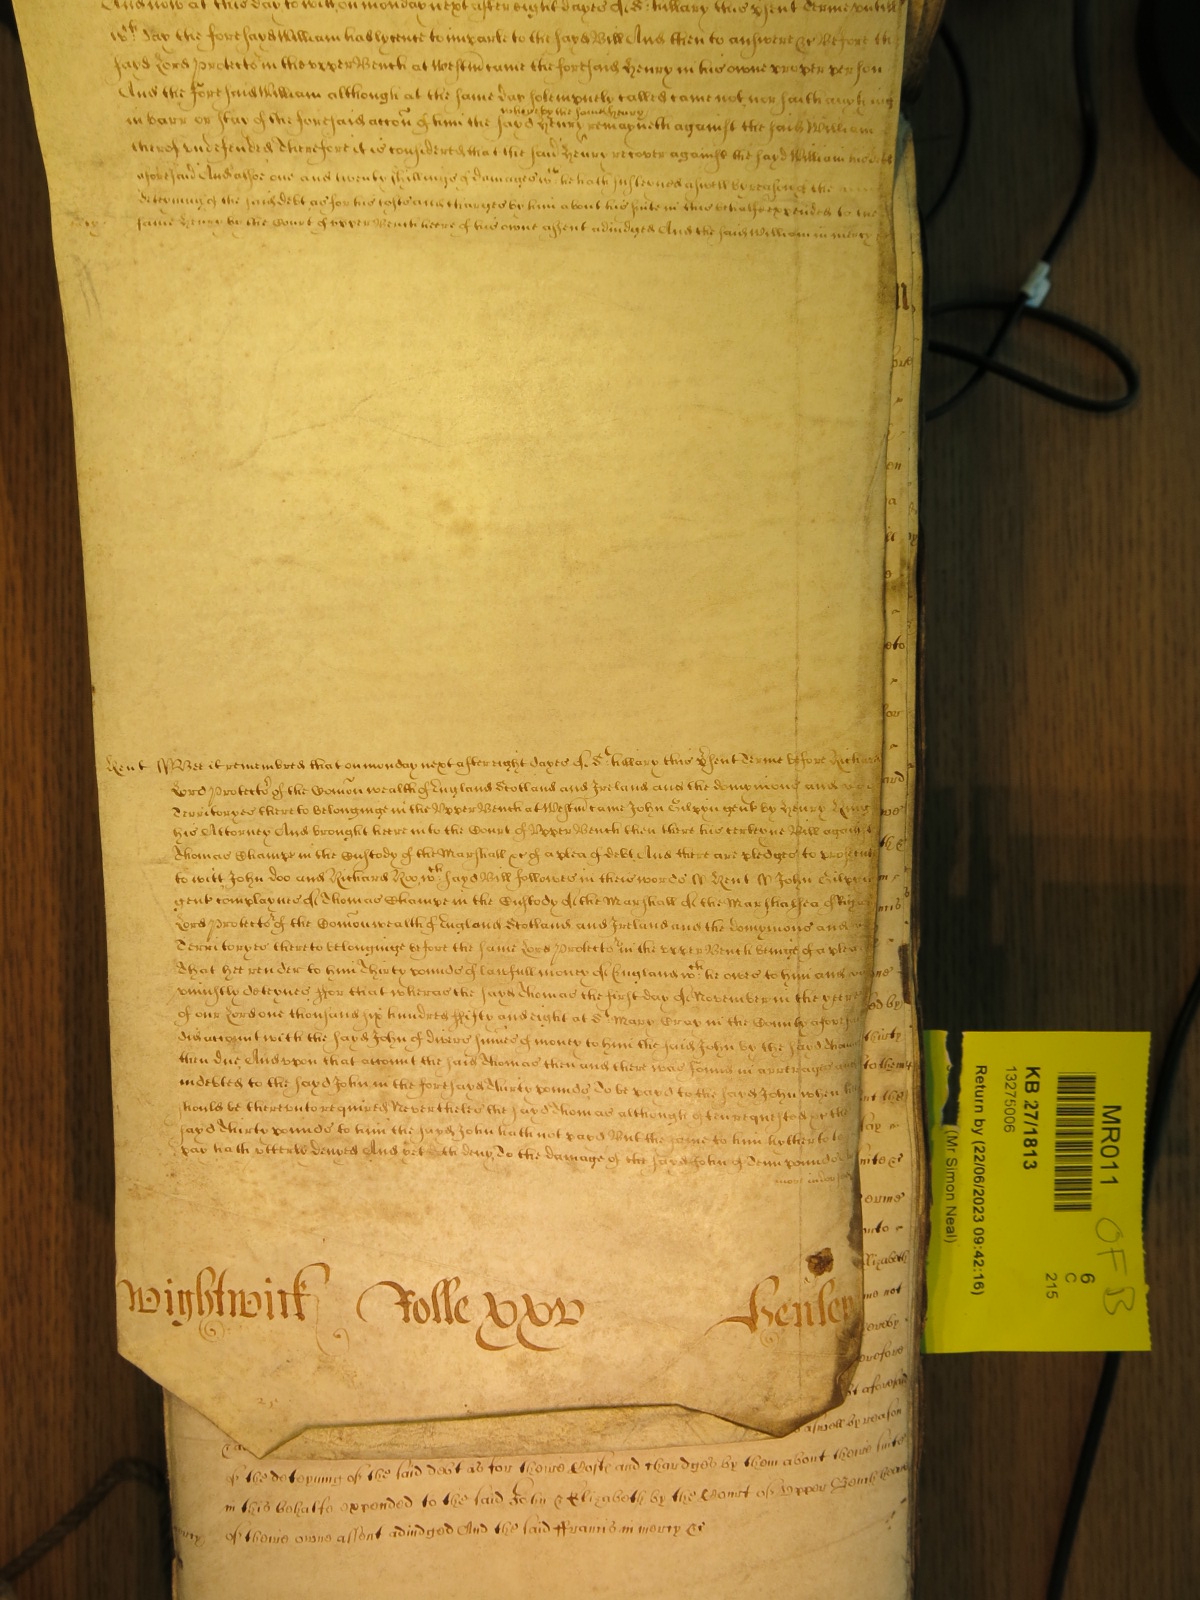 And now at this day to witt on monday next after eight dayes of St. hillary this psent Terme untill
wch day the foresayd William had lycence to imparle to the sayd Bill And then to answere &c Before the
sayd Lord Protector in the upper Bench at Westm came the foresaid Henry in his owne proper person
And the foresaid William although at the same day solempnely called came not nor saith any thing
whereby the same Henry
in barr or stay of the foresaid accon of him the sayd Henry remayneth against the said William
thereof undefended Therefore it is considered that the said Henry recover against the sayd William his debt
aforesaid And alsoe one and twenty shillings of damages wch he hath susteyned aswell by reason of the
deteyning of the said debt as for his costs and charges by him about his suite in this behalfe expended to the
same Henry by the Court of upper Bench heere of his owne assent adiudged And the said William in mercy
Kent ss Bee it remembred that on monday next after eight dayes of St. hillary this psent Terme before Richard
Lord Protector of the Comon wealth of England Scotland and Ireland and the domynions and
Territoryes thereto belonginge in the Upper Bench at Westm came John Gilpyn gent by Henry
his Attorney And brought heere into the Court of Upper Bench then there his certeyne Bill against
Thomas Champe in the Custody of the Marshall &c of a plea of debt And there are pledges to prosecute
to witt John Doo and Richard Roo wch sayd Bill followes in theis words ss Kent ss John Gilpyn
gent complaynes of Thomas Champe in the Custody of the Marshall of the Marshalsea of Richard
Lord Protector of the Comonwealth of England Scotland and Ireland and the domynions and
Territoryes thereto belonginge before the same Lord Protector in the upper Bench beinge of a plea
That hee render to him Thirty pounds of lawfull money of England wch he owes to him and
uniustly deteynes ffor that whereas the sayd Thomas the first day of November in the yeere
of our Lord one thousand six hundred ffifty and eight at St. Mary Cray in the County afores
did accompt with the sayd John of divers summes of money to him the said John by the sayd Thomas
then due And upon that accompt the said Thomas then and there was found in arrerages and
indebted to the sayd John in the foresayd Thirty pounds To be payd to the sayd John when he
should be thereunto required Nevertheles the sayd Thomas although often requested &c the
sayd Thirty pounds to him the sayd John hath not payd But the same to him hitherto to
pay hath utterly denyed And yet doth deny To the damage of the sayd John of Tenn pounds
Wightwick Rolle xxv Henley
of the deteyning of the said debt as for theire Costs and chardges by them about theire suite
in this behalfe expended to the said John & Elizabeth by the Court of Upper Bench heere
of theire owne assent adiudged And the said ffrancis in mercy &c
MR011
OF B
6
C
215
KB 27/1813
13275006
Return by (22/06/2023 09:42:16)
(Mr Simon Neal)